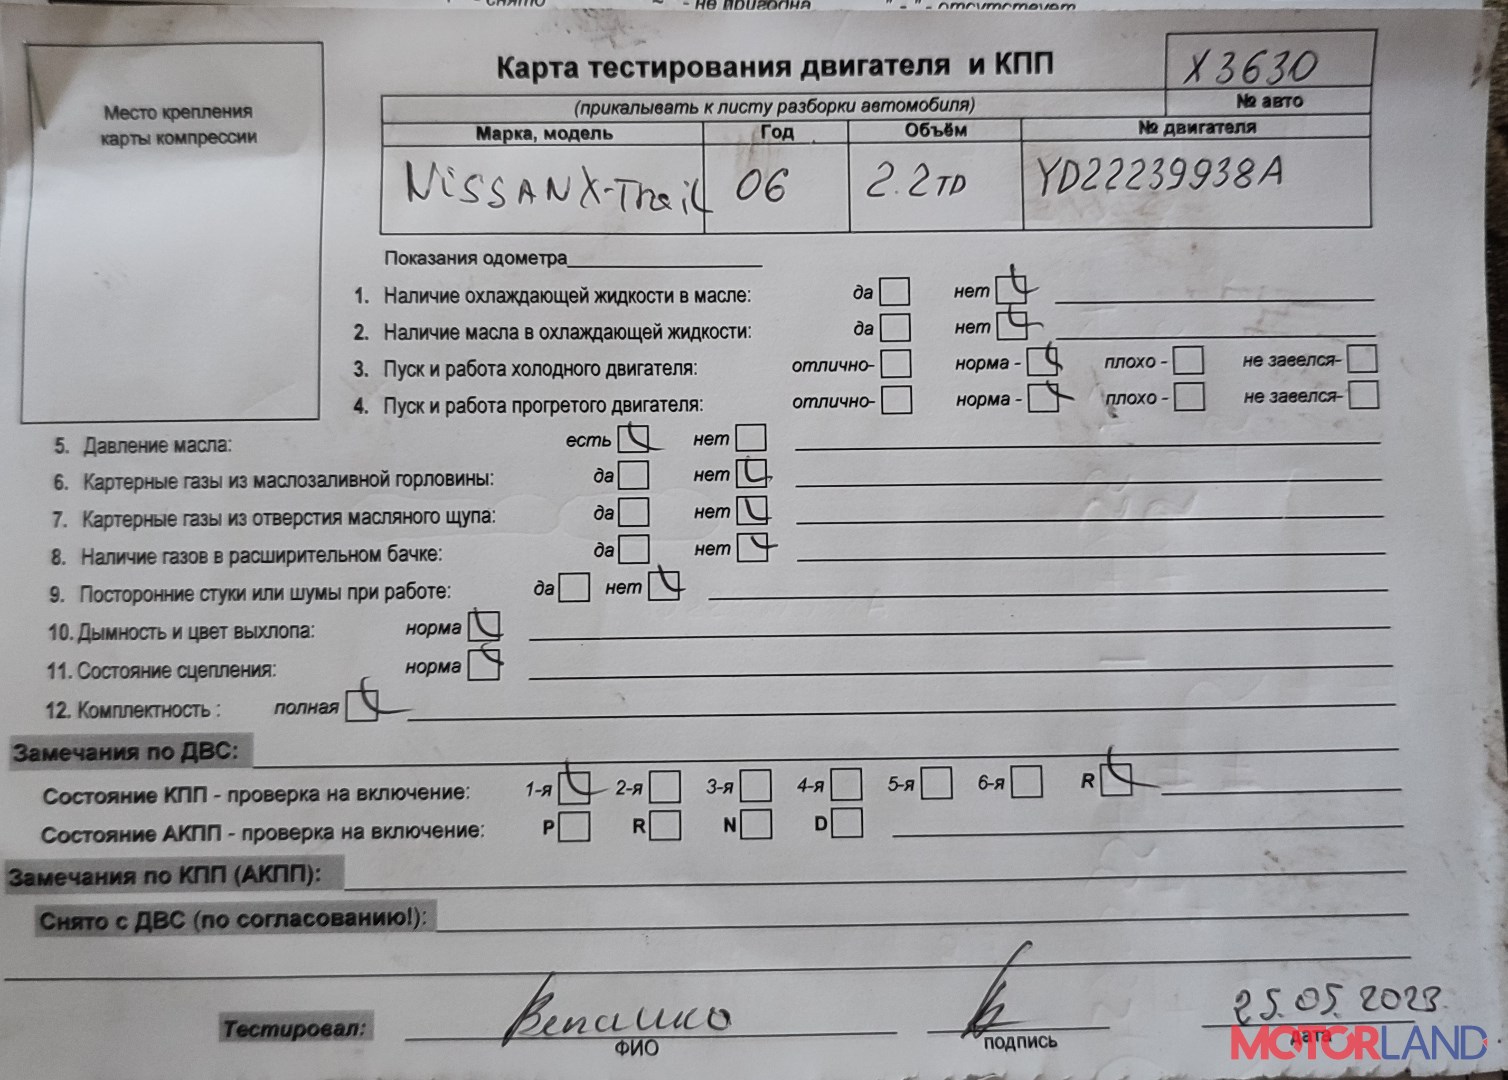 - снято ~ - не пригодна " - " - отсутствует
Место крепления
карты компрессии
Карта тестирования двигателя и КПП
X3630
(прикалывать к листу разборки автомобиля)
№ авто
Марка, модель Год Объём № двигателя
NiSSAN X-Trail 06 2.2TD YD22239938A
Показания одометра
1. Наличие охлаждающей жидкости в масле: да нет
2. Наличие масла в охлаждающей жидкости: да нет
3. Пуск и работа холодного двигателя: отлично- норма - плохо - не завелся-
4. Пуск и работа прогретого двигателя: отлично- норма - плохо - не завелся-
5. Давление масла: есть нет
6. Картерные газы из маслозаливной горловины: да нет
7. Картерные газы из отверстия масляного щупа: да нет
8. Наличие газов в расширительном бачке: да нет
9. Посторонние стуки или шумы при работе: да нет
10. Дымность и цвет выхлопа: норма
11. Состояние сцепления: норма
12. Комплектность : полная
Замечания по ДВС:
Состояние КПП - проверка на включение: 1-я 2-я 3-я 4-я 5-я 6-я R
Состояние АКПП - проверка на включение: P R N D
Замечания по КПП (АКПП):
Снято с ДВС (по согласованию!):
Тестировал: 25.05.2023
ФИО подпись дата
MOTORLAND